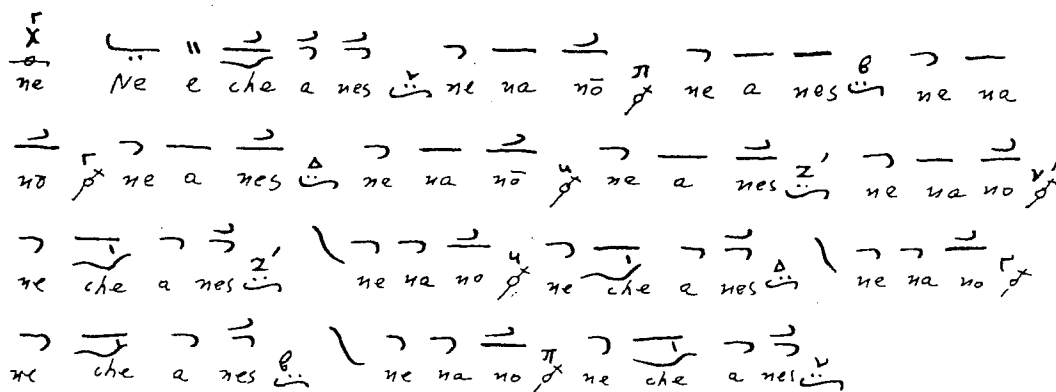 ne Ne e che a nes ne na nō ne a nes ne na
nō ne a nes ne na nō ne a nes ne na no
ne che a nes ne na no ne che a nes ne na no
ne che a nes ne na no ne che a nes